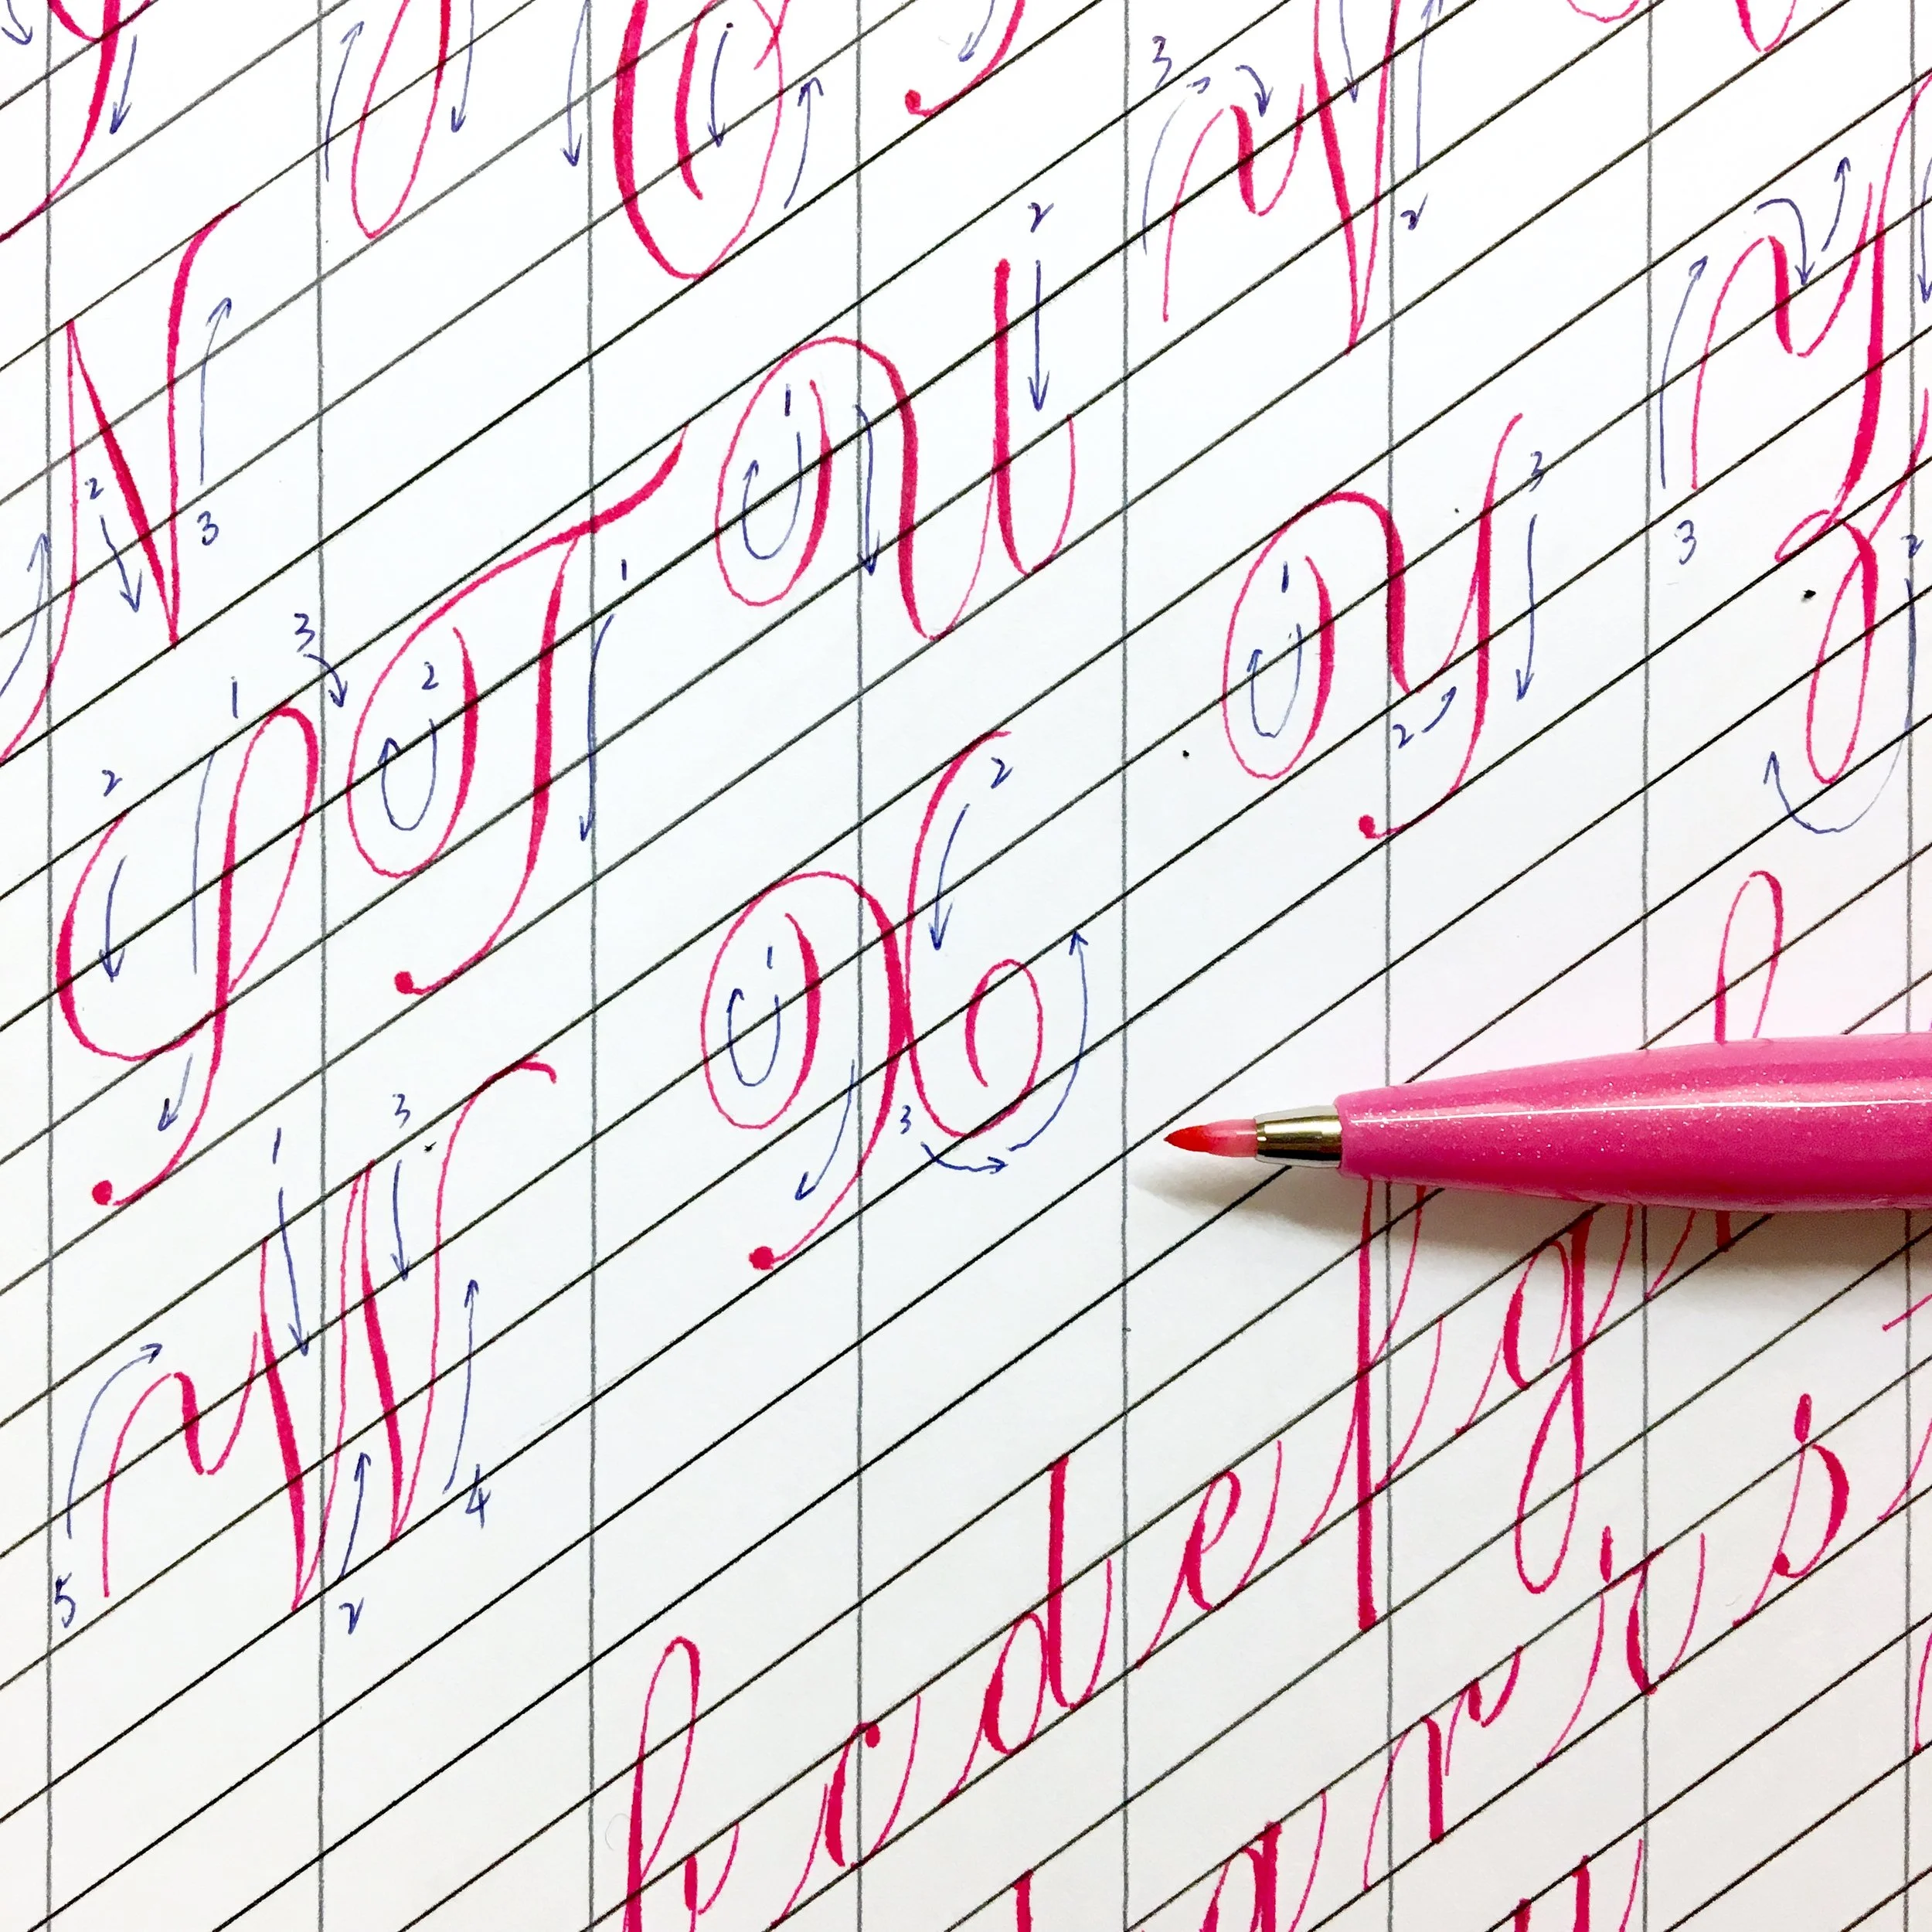 N 2 3
2 1 S 3 2 1 T 1 2 U 3 2 V
5 1 3 2 4 W 1 2 3 X 1 2 3 Y 3 2 Z
b c d e f g h
r s